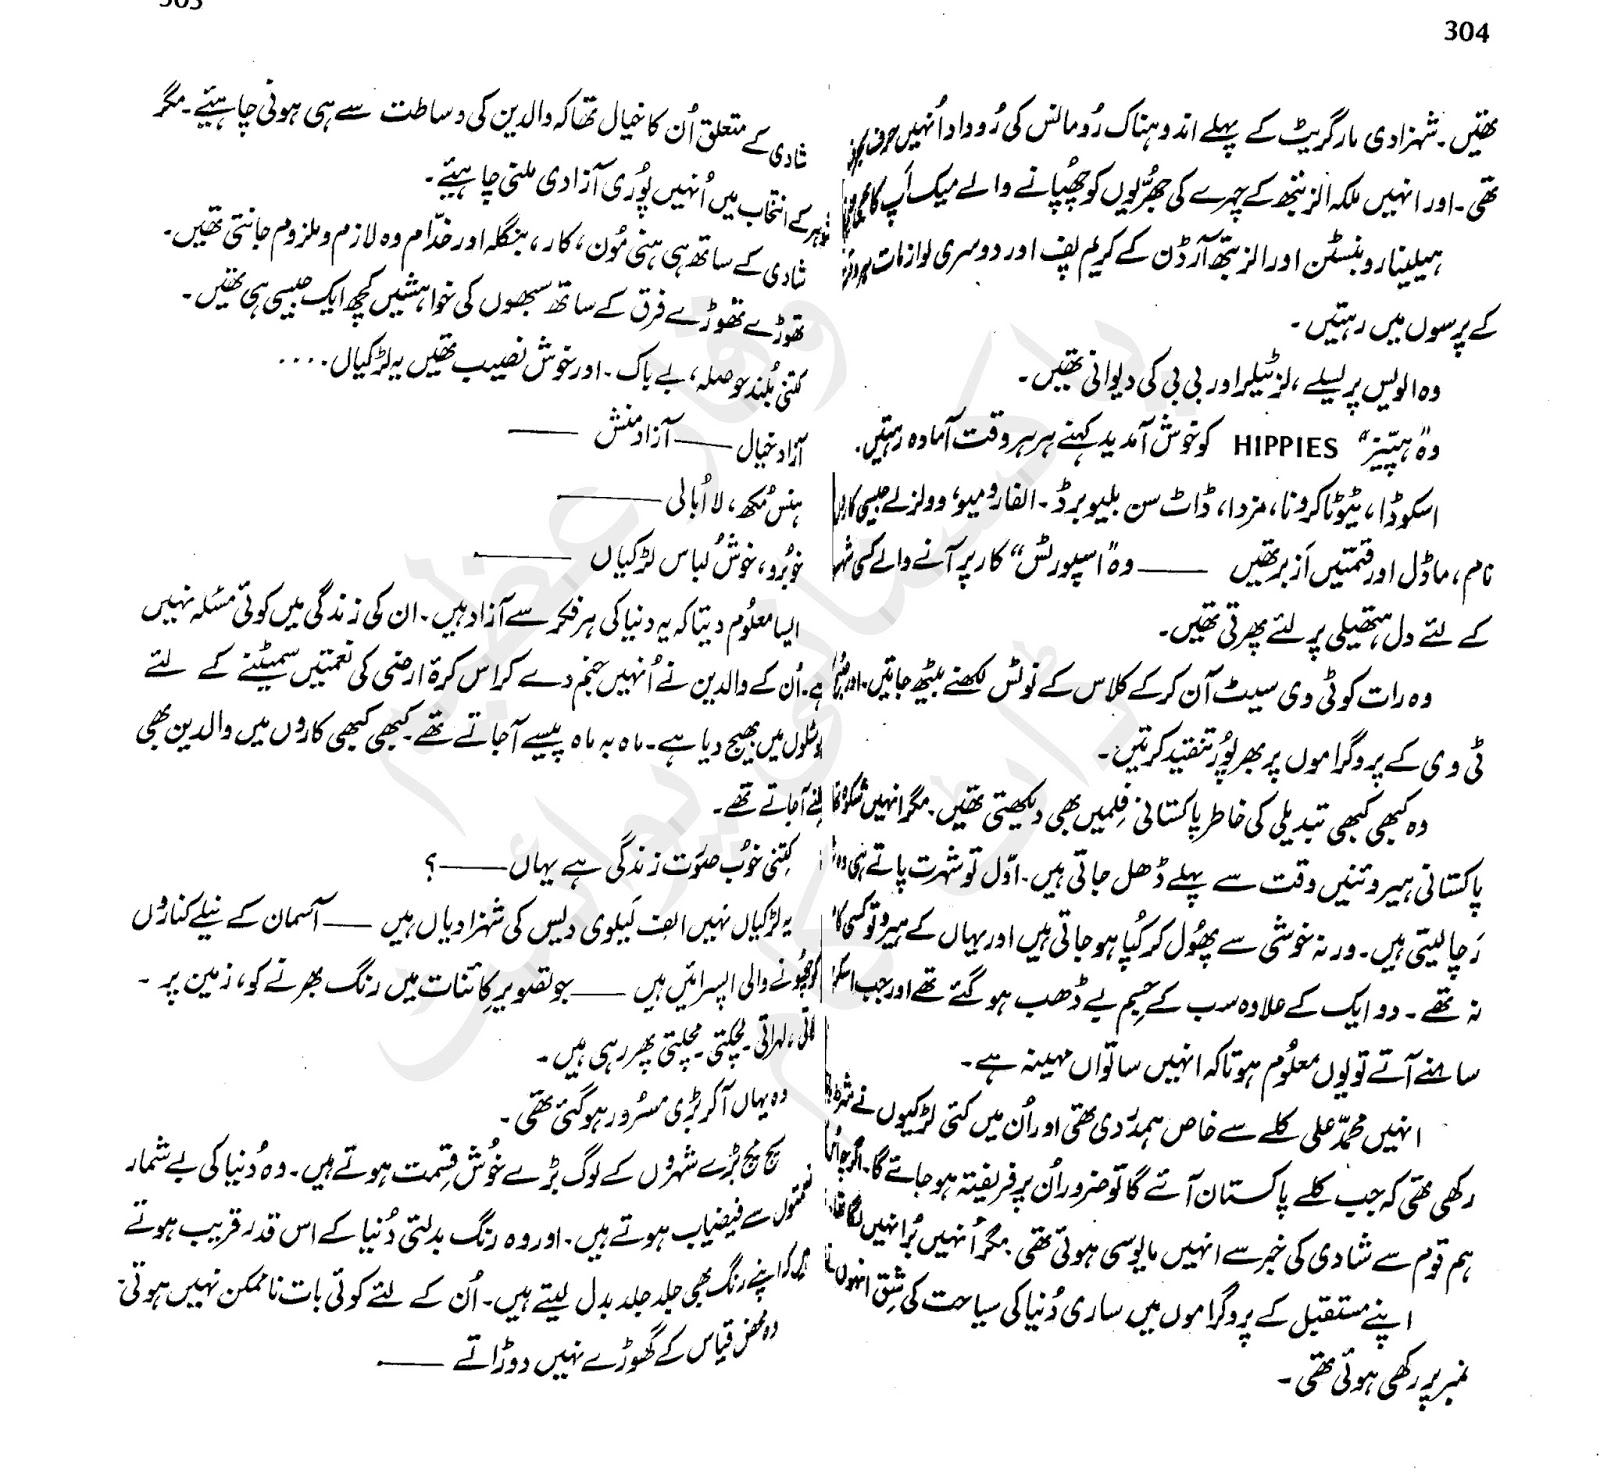 304
تھیں۔ شہزادی مارگریٹ کے پہلے اندوہناک رُومانس کی رُوداد اُنہیں حرف بحرف
تھی۔ اور انہیں ملکہ الزبتھ کے چہرے کی جھُرّیوں کو چھُپانے والے میک اَپ کا
ہیلینا روبنسٹن اور الزبتھ آرڈن کے کریم پف اور دوسری لوازمات
کے پرسوں میں رہتیں۔
وہ الویس پریسلے، لزٹیلر اور بی بی کی دیوانی تھیں۔
وہ "ہپّیز" HIPPIES کو خوش آمدید کہنے ہر وقت آمادہ رہتیں۔
اسکوڈا، ٹیوٹا کرونا، مزدا، ڈاٹ سن بلیو برڈ۔ الفا رومیو، وولزلے جیسی کاروں
نام، ماڈل اور قیمتیں اَزبر تھیں —— وہ "اسپورٹس" کار پر آنے والے کسی
کے لئے دل ہتھیلی پر لئے پھرتی تھیں۔
وہ رات کو ٹی وی سیٹ آن کر کے کلاس کے نوٹس لکھنے بیٹھ جاتیں۔ اور
ٹی وی کے پروگراموں پر بھرپُور تنقید کرتیں۔
وہ کبھی کبھی تبدیلی کی خاطر پاکستانی فِلمیں بھی دیکھتی تھیں۔ مگر انہیں شکوہ تھا
پاکستانی ہیروئنیں وقت سے پہلے ڈھل جاتی ہیں۔ اوّل تو شہرت پاتے ہی وہ
رَچا لیتی ہیں۔ ورنہ خوشی سے پھُول کر کُپا ہو جاتی ہیں اور یہاں کے ہیرو تو کسی کا
نہ تھے۔ دو ایک کے علاوہ سب کے جِسم بے ڈھب ہو گئے تھے اور جب
سامنے آتے تو یوں معلُوم ہوتا کہ انہیں ساتواں مہینہ ہے۔
انہیں محمّد علی کلے سے خاص ہمدردی تھی اور اُن میں کئی لڑکیوں نے
رکھی تھی کہ جب کلے پاکستان آئے گا تو ضرور اُن پر فریفتہ ہو جائے گا۔
ہم قوم سے شادی کی خبر سے انہیں مایوسی ہوئی تھی۔ مگر اُنہیں بُرا نہیں لگا تھا۔
اپنے مستقبل کے پروگراموں میں ساری دُنیا کی سیاحت کی شِق انہوں نے
نمبر پر رکھی ہوئی تھی۔
شادی کے متعلق اُن کا خیال تھا کہ والدین کی وساطت سے ہی ہونی چاہیئے۔ مگر
شوہر کے انتخاب میں اُنہیں پُوری آزادی ملنی چاہیئے۔
شادی کے ساتھ ہی ہنی مُون، کار، بنگلہ اور خدّام وہ لازم و ملزوم جانتی تھیں۔
تھوڑے تھوڑے فرق کے ساتھ سبھوں کی خواہشیں کچھ ایک جیسی ہی تھیں۔
کتنی بُلند حوصلہ، بے باک۔ اور خوش نصیب تھیں یہ لڑکیاں....
آزاد خیال —— آزاد منش ——
ہنس مُکھ، لا اُبالی ——
خوبُرو، خوش لباس لڑکیاں ——
ایسا معلُوم دیتا کہ یہ دنیا کی ہر فکر سے آزاد ہیں۔ ان کی زندگی میں کوئی مسئلہ نہیں
ہے۔ اُن کے والدین نے اُنہیں جنم دے کر اس کرۂ ارضی کی نعمتیں سمیٹنے کے لئے
ہوسٹلوں میں بھیج دیا ہے۔ ماہ بہ ماہ پیسے آجاتے تھے۔ کبھی کبھی کاروں میں والدین بھی
ملنے آجاتے تھے۔
کِتنی خوُب صوُرت زندگی ہے یہاں —— ؟
یہ لڑکیاں نہیں الف لَیلوی دیس کی شہزادیاں ہیں —— آسمان کے نیلے کناروں
کو چھُونے والی اپسرائیں ہیں —— جو تصویرِ کائنات میں رنگ بھرنے کو، زمین پر۔
لہراتی۔ لچکتی۔ مچلتی پھر رہی ہیں۔
وہ یہاں آکر بڑی مسرُور ہو گئی تھی۔
سچ مچ بڑے شہروں کے لوگ بڑے خُوش قِسمت ہوتے ہیں۔ وہ دُنیا کی بے شمار
نعمتوں سے فیضیاب ہوتے ہیں۔ اور وہ رنگ بدلتی دُنیا کے اس قدر قریب ہوتے
ہیں کہ اپنے رنگ بھی جلد جلد بدل لیتے ہیں۔ اُن کے لئے کوئی بات ناممکن نہیں ہوتی۔
وہ محض قیاس کے گھوڑے نہیں دوڑاتے ——